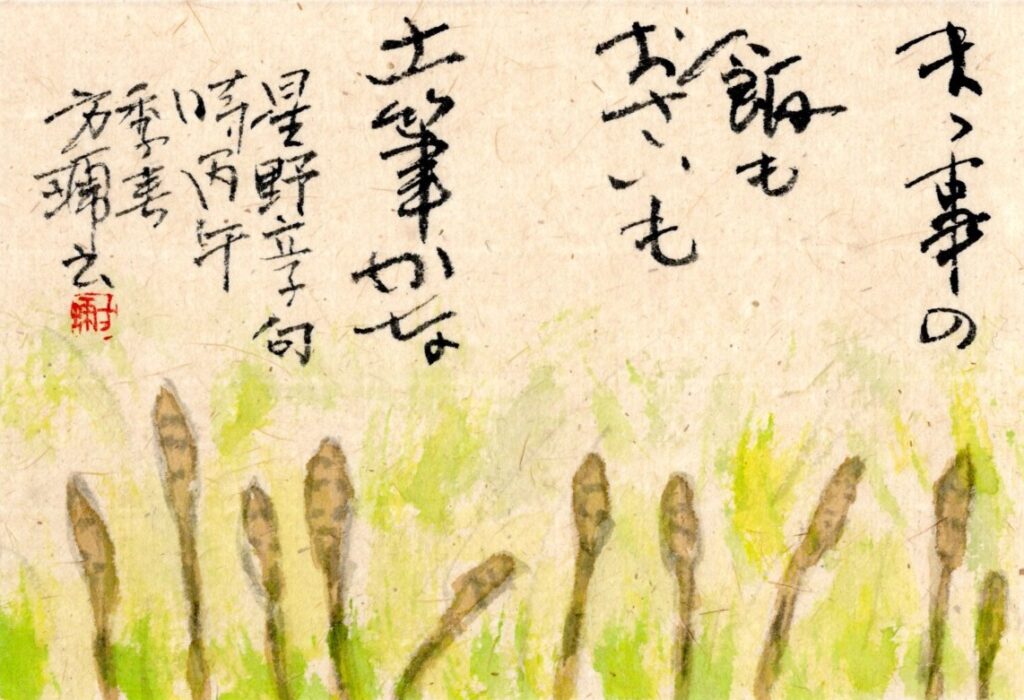 まゝ事の
飯も
おさいも
土筆かな
星野立子句
時丙午
季春
方書